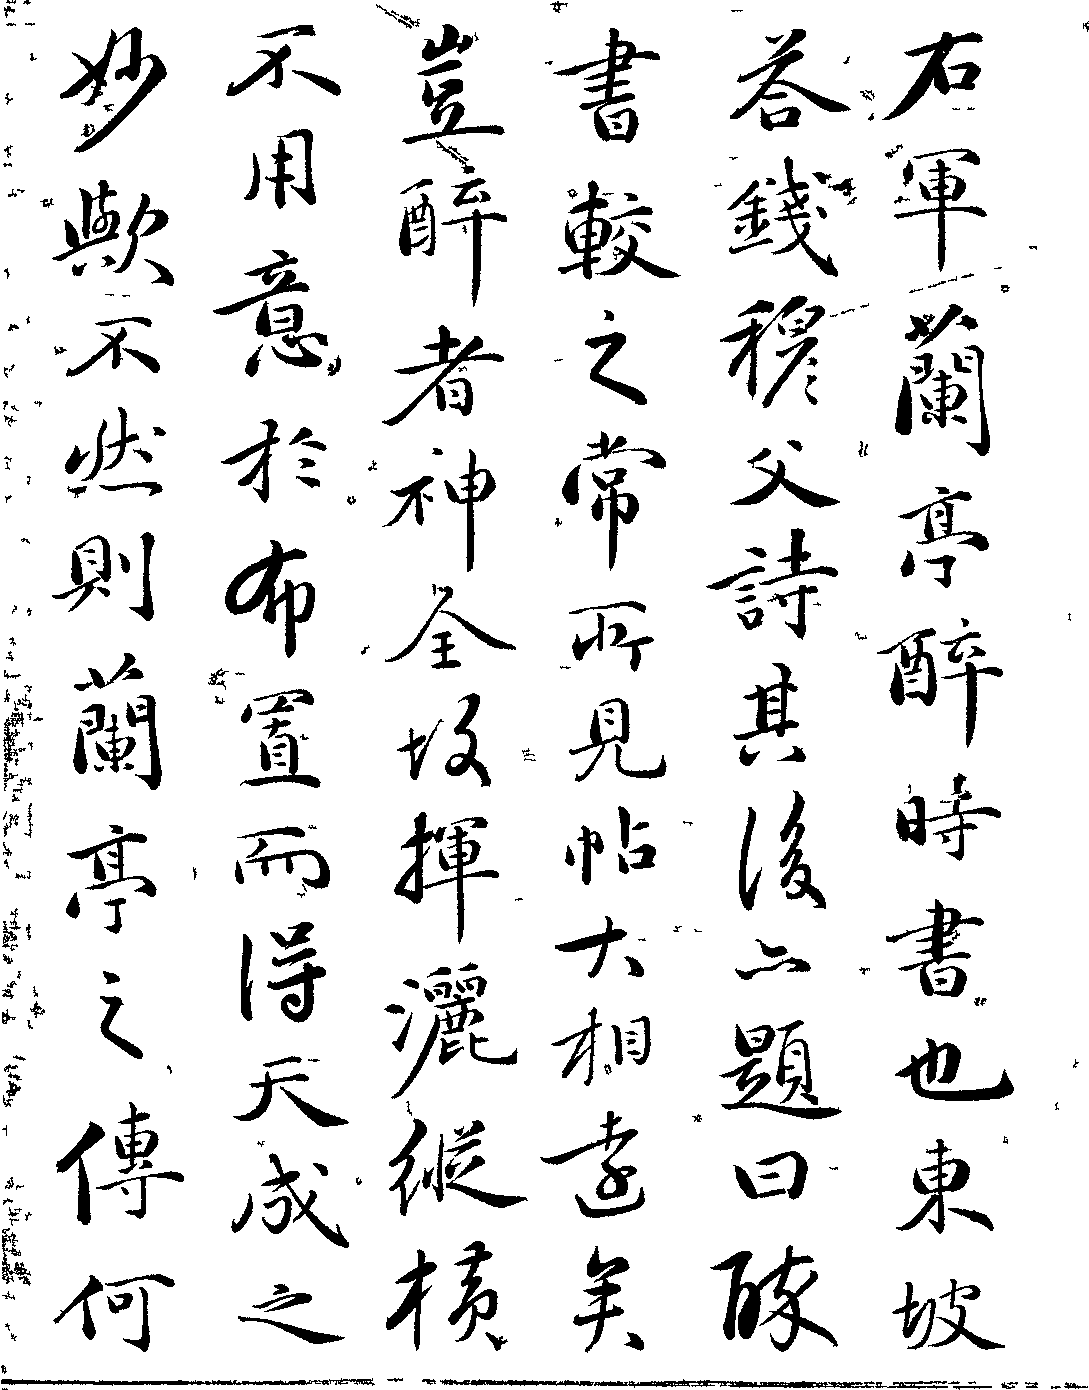 右軍蘭亭醉時書也東坡
答錢穆父詩其後亦題曰醉
書較之常所見帖大相遠矣
豈醉者神全故揮灑縱橫
不用意於布置而得天成之
妙歟不然則蘭亭之傳何